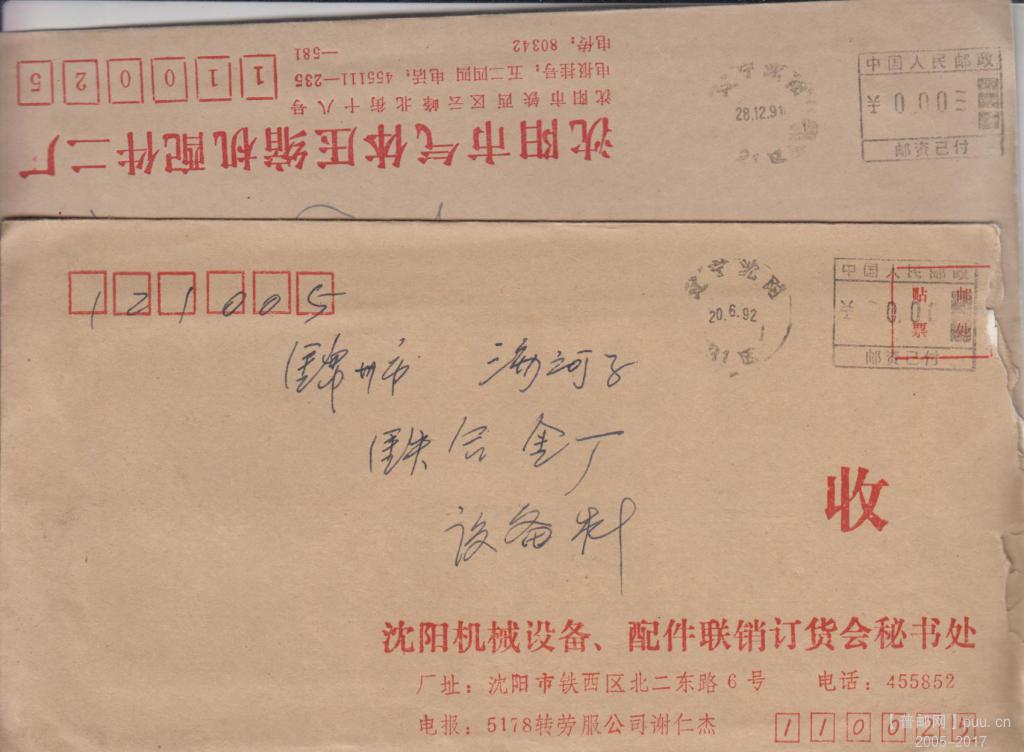 中国人民邮政
28.12.91
邮资已付
110025
—581
电传：80342
电报挂号：五二四四 电话：455111—235
沈阳市铁西区云峰北街十八号
沈阳市气体压缩机配件二厂
121005
辽宁沈阳
20.6.92
中国人民邮政
贴邮
票处
邮资已付
锦州市 汤河子
铁合金厂
设备科
收
沈阳机械设备、配件联销订货会秘书处
厂址：沈阳市铁西区北二东路6号 电话：455852
电报：5178转劳服公司谢仁杰
[普邮网]puu.cn
2005-2017